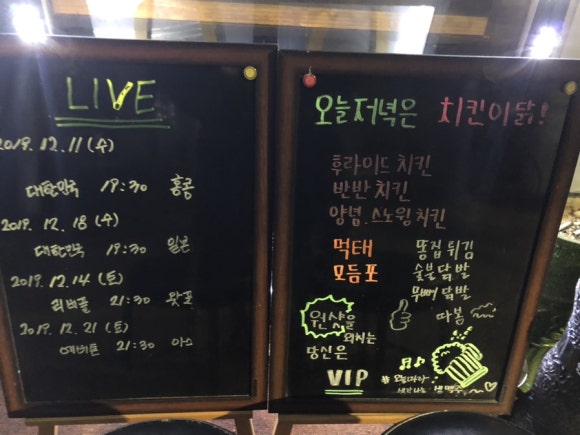 LIVE
2019. 12. 11 (수)
대한민국 19:30 홍콩
2019. 12. 18 (수)
대한민국 19:30 일본
2019. 12. 14 (토)
리버풀 21:30 왓포
2019. 12. 21 (토)
에버튼 21:30 아스
오늘저녁은 치킨이닭!
후라이드 치킨
반반 치킨
양념. 스노윙 치킨
먹태
모듬포
똥집 튀김
숯불 닭발
무뼈 닭발
따봄
원샷을
외치는
당신은
VIP